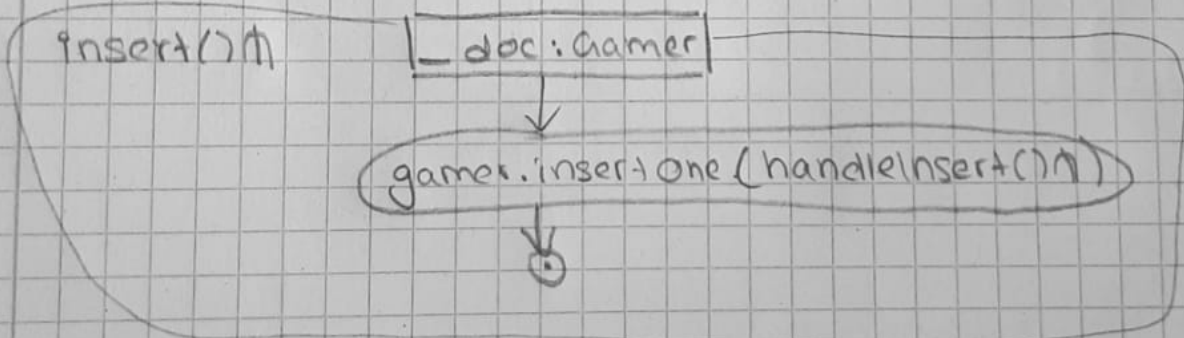 insert()⋔
_doc: Gamer
gamer.insertOne(handleInsert()⋔)